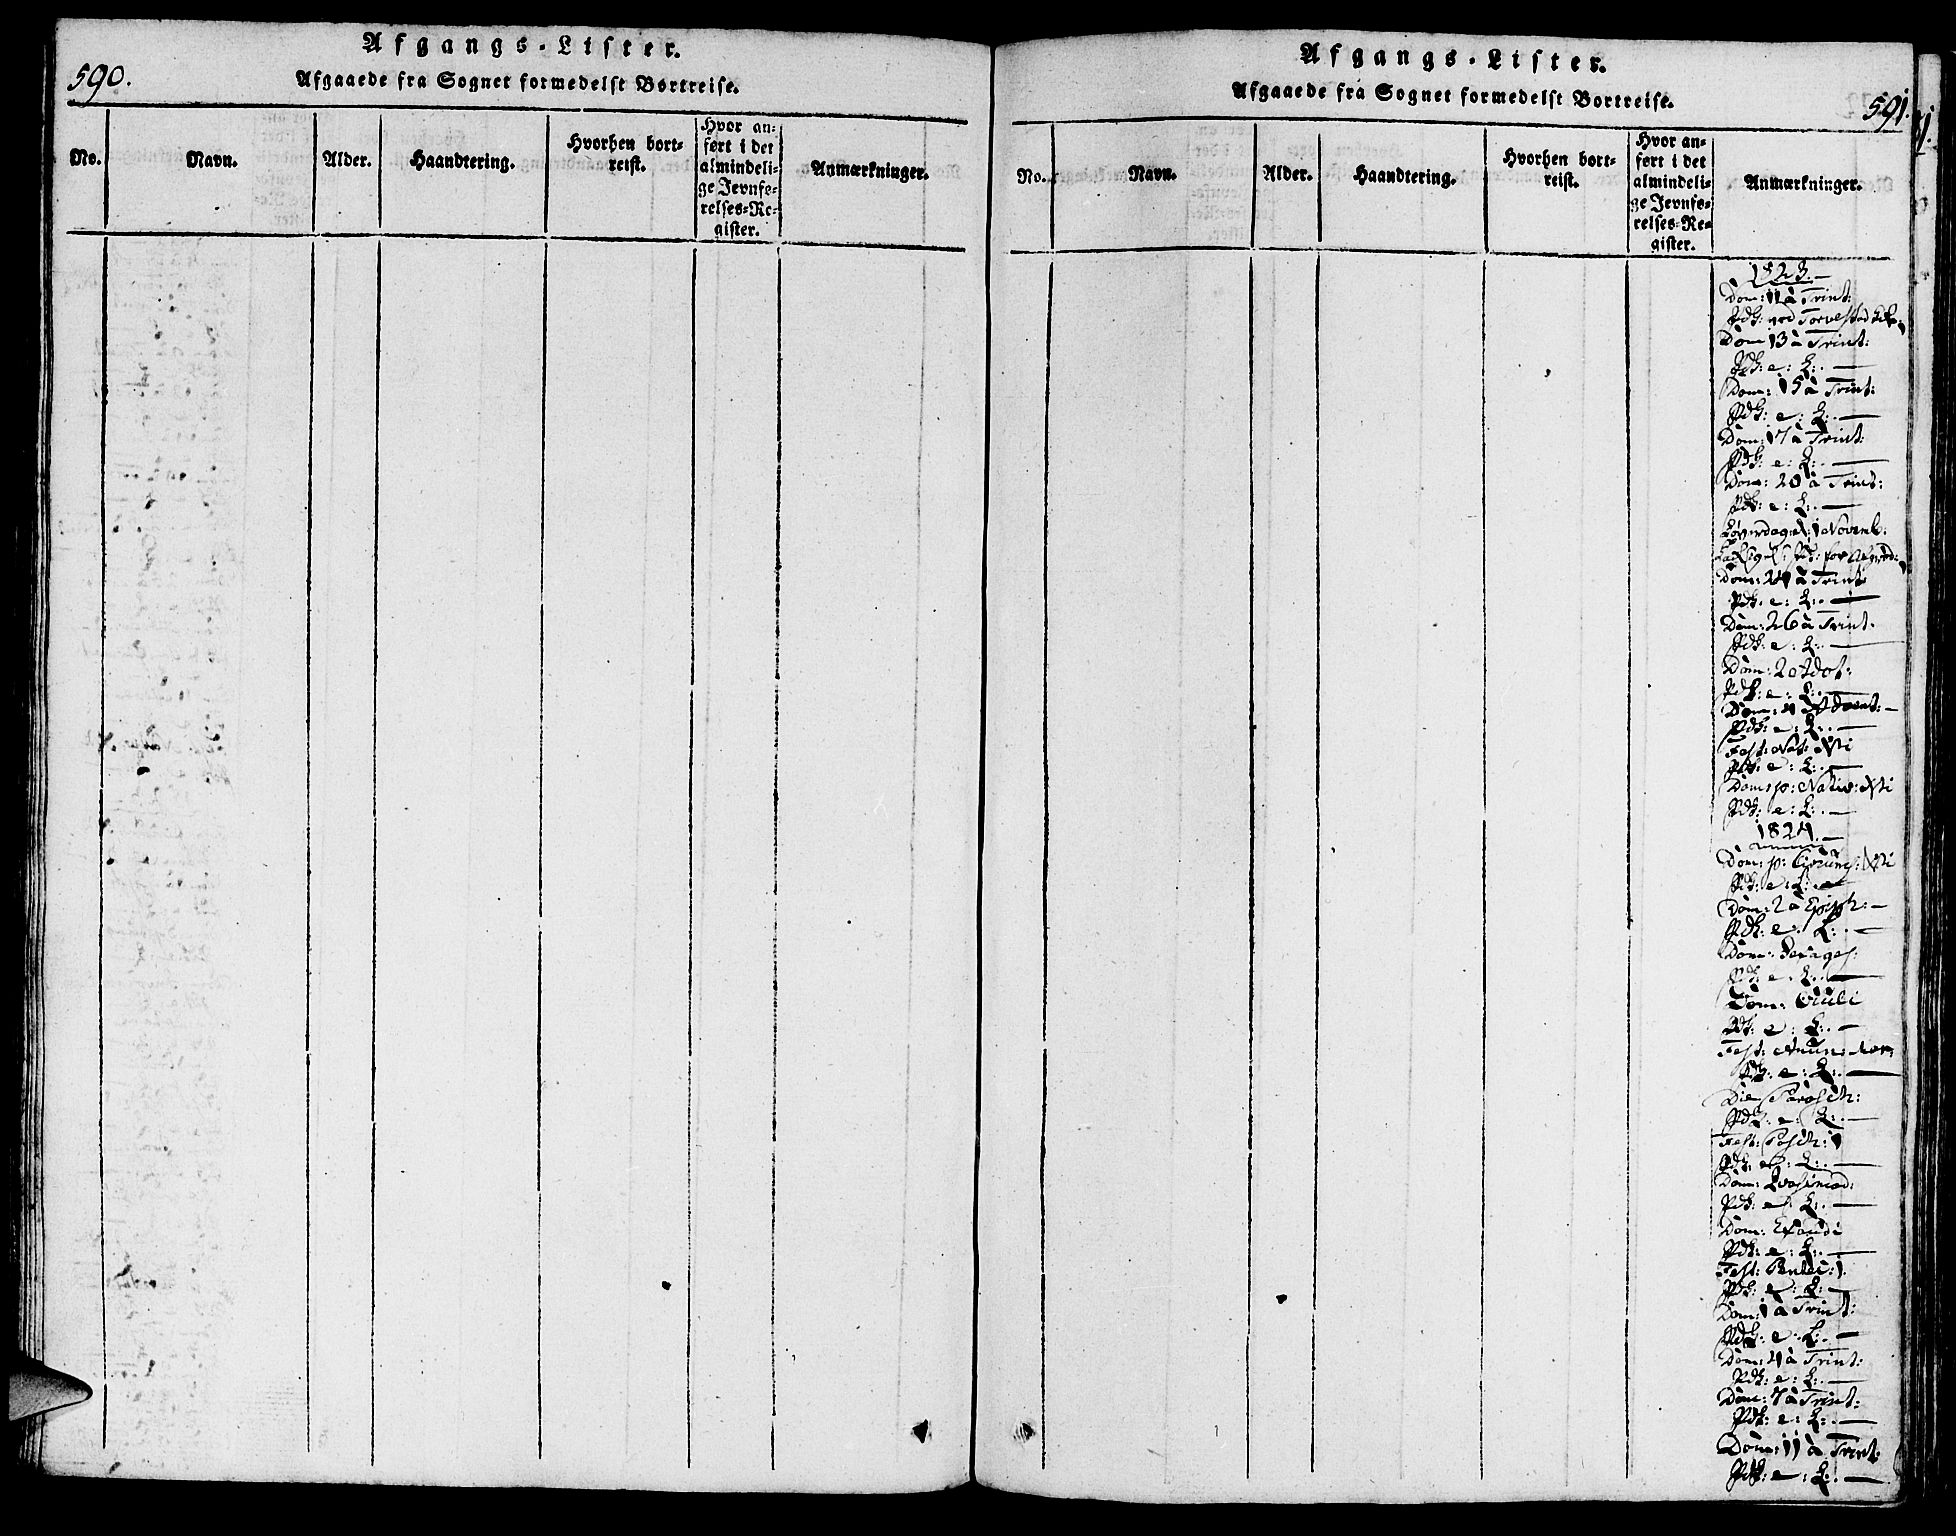 Afgangs-Lister.
590.
Afgaaede fra Sognet formedelst Bortreise.
No.
Navn.
Alder.
Haandtering.
Hvorhen bort-
reist.
Hvor an-
ført i det
almindeli-
ge Jevnfø-
relses-Re-
gister.
Anmærkninger.
Afgangs-Lister.
591.
Afgaaede fra Sognet formedelst Bortreise.
No.
Navn.
Alder.
Haandtering.
Hvorhen bort-
reist.
Hvor an-
ført i det
almindeli-
ge Jevnfø-
relses-Re-
gister.
Anmærkninger.
1823.
Dom: 12 à Trint:
Pdk: ved Torvestad
Dom 13 à Trint:
Pdk: e: L:.
Dom: 15 à Trint:
Pdk: e: L:.
Dom: 17 à Trint:
Pdk: e: L:.
Dom: 20 à Trint:
Pdk: e: L:.
Løverdagen 1 Novemb.
Pdk: for
Dom: 24 à Trint
Pdk. e: L:.
Dom: 26 à Trint.
Pdk: e: L:.
Dom: 2
Pdk: e: L:.
Dom: 4 Advent:
Pdk: e: L:.
Fest: Nat: Xti
Pdk: e: L:.
Dom: p: Nativ: Xti
Pdk: e: L:.
1824.
Dom: p: Circumc: Xti
Pdk: e: L:.
Dom: 2 à Epiph:
Pdk: e: L:.
Dom: Sexages:
Pdk: e: L:.
Dom: Oculi
Pdk: e: L:.
Fest: Anun: Mar:
Pdk: e: L:.
Die Parasch:
Pdk: e: L:.
Fest: Pasch: 1
Pdk: e: L:.
Dom: Qvasimod:
Pdk: e: L:.
Dom: Exaudi
Pdk: e: L:.
Fest: Pentec: 1.
Pdk: e: L:.
Dom: 1 à Trint:
Pdk: e: L:.
Dom: 4 à Trint:
Pdk: e: L:.
Dom: 7 à Trint:
Pdk: e: L:.
Dom: 11 à Trint:
Pdk: e: L:.